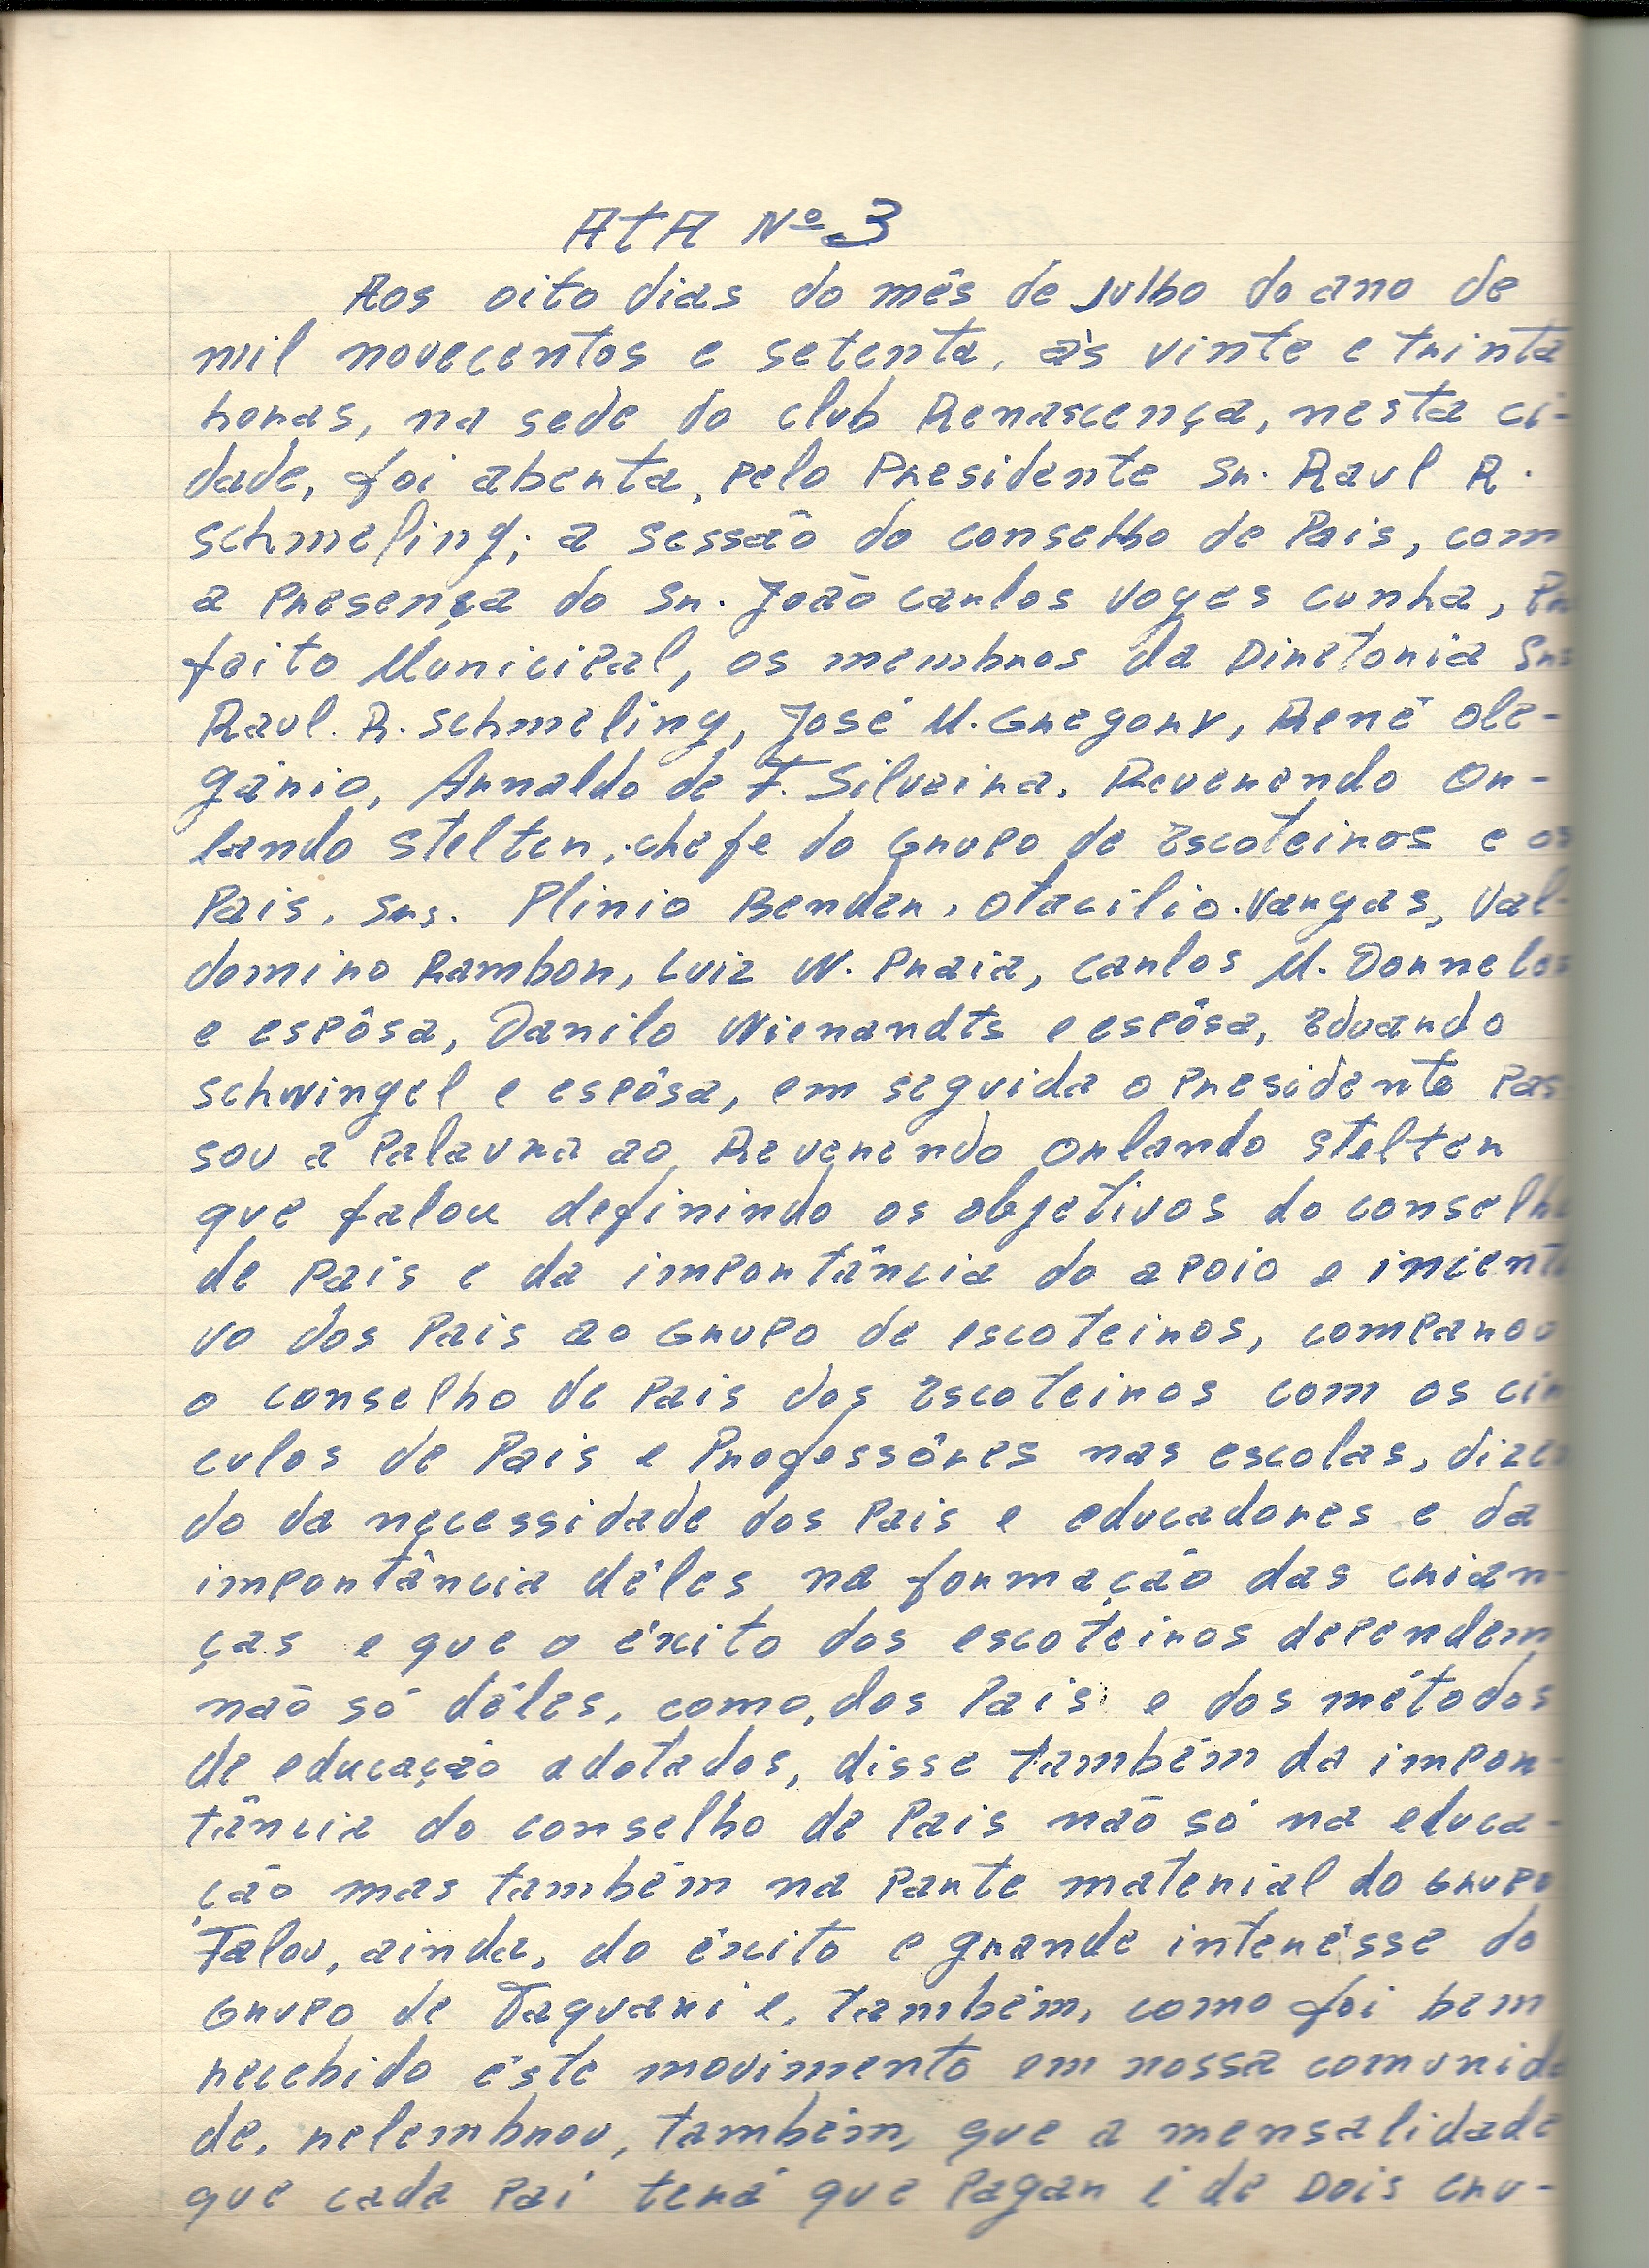 AtA Nº 3
Aos oito dias do mês de julho do ano de
mil novecentos e setenta, às vinte e trinta
horas, na sede do club Renascença, nesta ci-
dade, foi aberta, pelo Presidente Sr. Raul R.
Schmeling; a sessão do conselho de Pais, com
a presença do Sr. João Carlos Voges Cunha, Pre
feito Municipal, os membros da Diretoria Srs
Raul. R. Schmeling, José M. Gregory, Renê Ole-
gário, Arnaldo de F. Silveira, Reverendo Or-
lando Stelter, chefe do Grupo de Escoteiros e os
Pais, Srs. Plinio Bender, Otacilio Vargas, Val-
domiro Rambor, Luiz W. Praia, Carlos M. Dornelos
e espôsa, Danilo Wienandts e espôsa, Eduardo
Schwingel e espôsa, em seguida o Presidente Pas
sou a Palavra ao Reverendo Orlando Stelter
que falou definindo os objetivos do conselho
de Pais e da importância do apoio e incenti
vo dos Pais ao Grupo de escoteiros, comparou
o conselho de Pais dos Escoteiros com os cir
culos de Pais e Professôres nas escolas, dizen
do da necessidade dos Pais e educadores e da
importância dêles na formação das crian-
ças e que o êxito dos escoteiros dependem
não só dêles, como, dos Pais e dos métodos
de educação adotados, disse também da impor-
tância do conselho de Pais não só na educa-
ção mas também na parte material do Grupo
Falou, ainda, do êxito e grande interêsse do
Grupo de Taquari e, também, como foi bem
recebido êste movimento em nossa comunida
de, relembrou, também, que a mensalidade
que cada Pai terá que Pagar é de Dois cru-